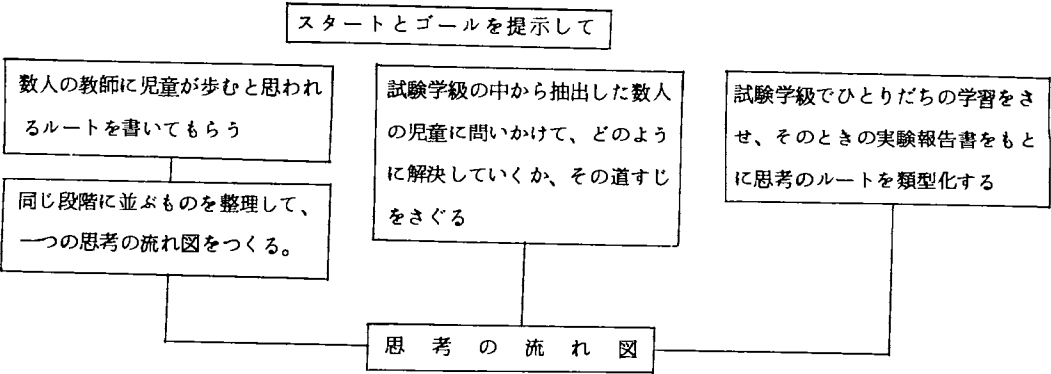 スタートとゴールを提示して
数人の教師に児童が歩むと思われ
るルートを書いてもらう
同じ段階に並ぶものを整理して、
一つの思考の流れ図をつくる。
試験学級の中から抽出した数人
の児童に問いかけて、どのよう
に解決していくか、その道すじ
をさぐる
試験学級でひとりだちの学習をさ
せ、そのときの実験報告書をもと
に思考のルートを類型化する
思考の流れ図